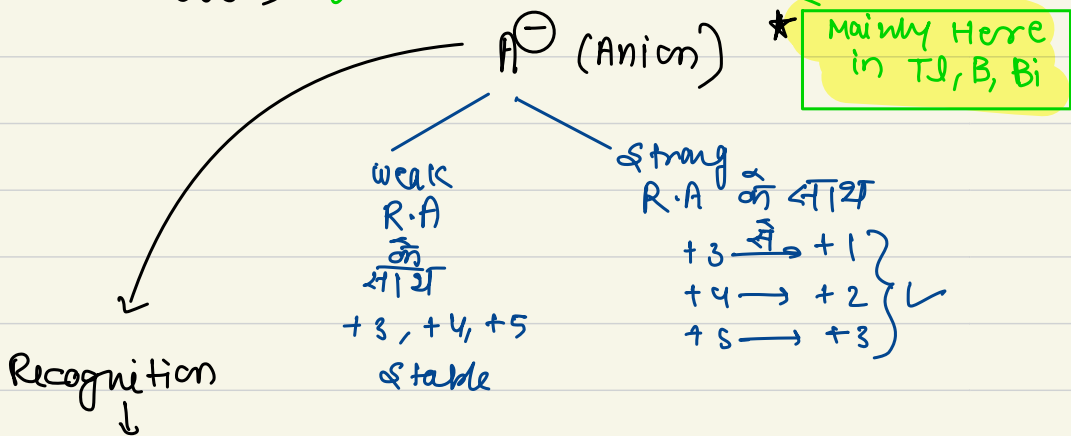 A⊖ (Anion)
★ Mainly Here
in Tl, B, Bi
weak
R.A
के
साथ
+3, +4, +5
Stable
Strong
R.A के साथ
+3 से→ +1
+4 → +2
+5 → +3
✓
Recognition
↓